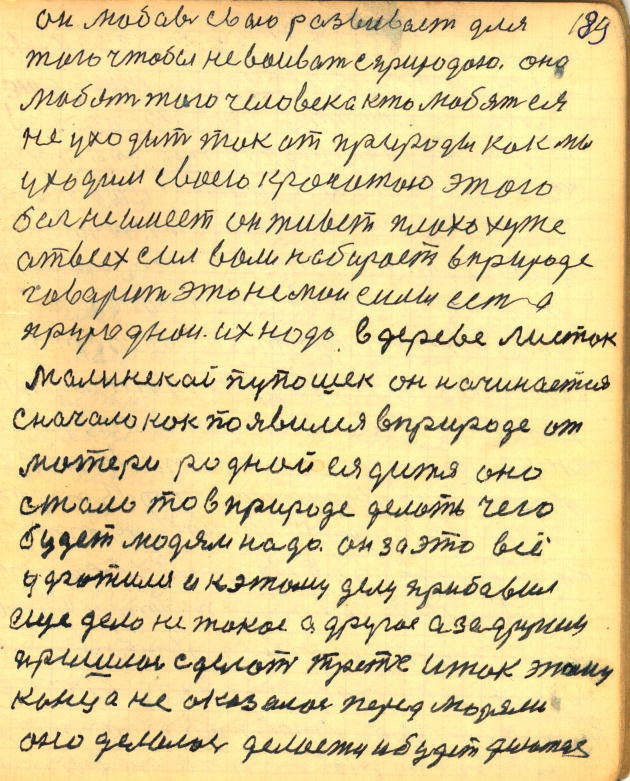 он любовь свою развивает для 189
того чтобы не воиват сприродою. она
любят того человека кто любятся
не уходит так от природы как мы
уходим своего крочатою этого
бел не имеет он живет плохо хуже
от всех сил воли набирает вприроде
говарит это не мои силы ест а
природнои. их надо в дереве листок
малинекай пупошек он начинается
сначало как появился вприроде от
матери родной ся дитя оно
стало то в природе делоть чего
будет людям надо. он за это всё
ухротили и к этому делу прибавил
еще дело не такое а другое а за другим
пришлось сделот трете и так этому
конца не оказалос перед людями
оно делалос делается и будет